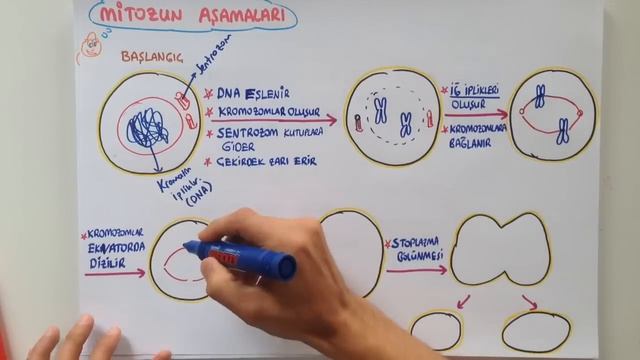 MİTOZUN AŞAMALARI
BAŞLANGIÇ
Sentrozom
Kromatin
iplikler
(DNA)
* DNA EŞLENİR
* KROMOZOMLAR OLUŞUR
* SENTROZOM KUTUPLARA
GİDER
* ÇEKİRDEK ZARI ERİR
* İĞ İPLİKLERİ
OLUŞUR
* KROMOZOMLARA
BAĞLANIR
* KROMOZOMLAR
EKVATORDA
DİZİLİR
* STOPLAZMA
BÖLÜNMESİ